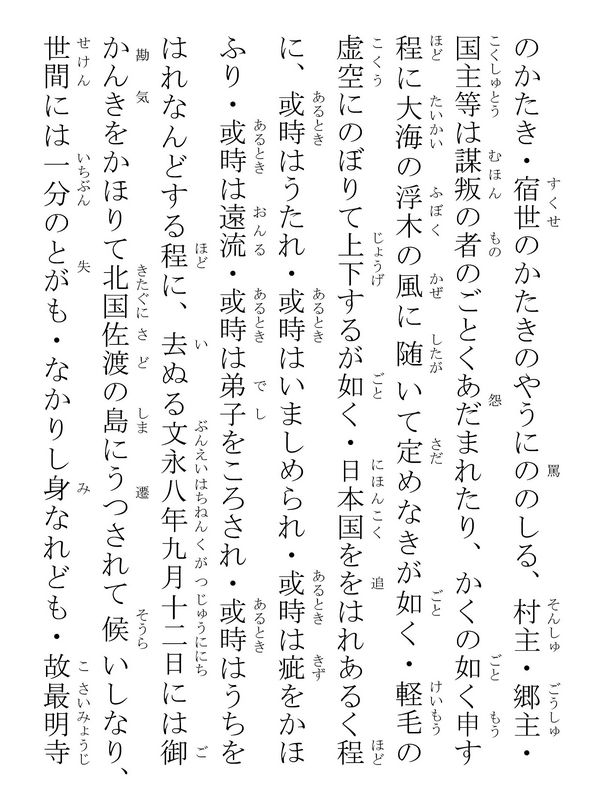 のかたき・宿世のかたきのやうにののしる、村主・郷主・
国主等は謀叛の者のごとくあだまれたり、かくの如く申す
程に大海の浮木の風に随いて定めなきが如く・軽毛の
虚空にのぼりて上下するが如く・日本国ををはれあるく程
に、或時はうたれ・或時はいましめられ・或時は疵をかほ
ふり・或時は遠流・或時は弟子をころされ・或時はうちを
はれなんどする程に、去ぬる文永八年九月十二日には御
かんきをかほりて北国佐渡の島にうつされて候いしなり、
世間には一分のとがも・なかりし身なれども・故最明寺